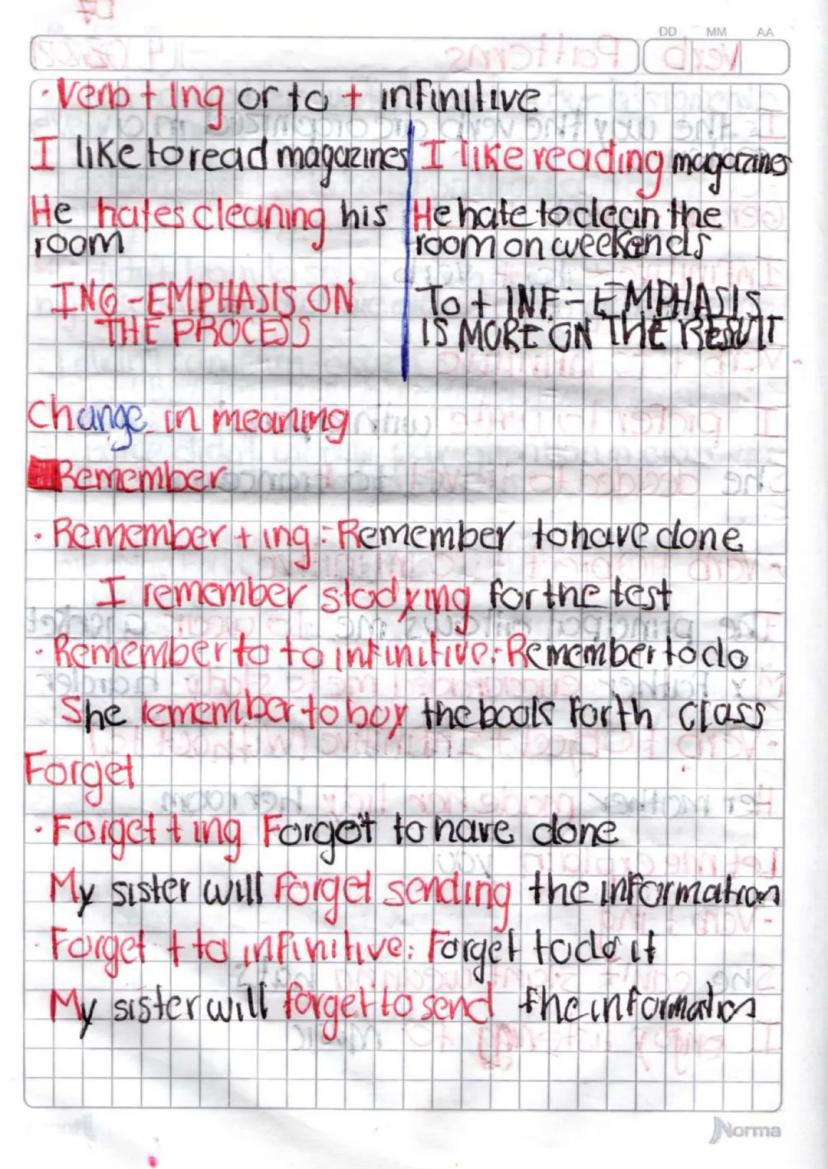 DD MM AA
· Verb + Ing or to + infinitive
I like to read magazines
He hates cleaning his
room
ING - EMPHASIS ON
THE PROCESS
I like reading magazines
He hate to clean the
room on weekends
To + INF - EMPHASIS
IS MORE ON THE RESULT
Change in meaning
Remember
· Remember + ing : Remember to have done
I remember studying for the test
· Remember to to infinitive: Remember to do
She remember to buy the books for th class
Forget
· Forget + ing Forgot to have done
My sister will Forget sending the information
· Forget + to infinitive: Forget to do it
My sister will forget to send the information
Norma